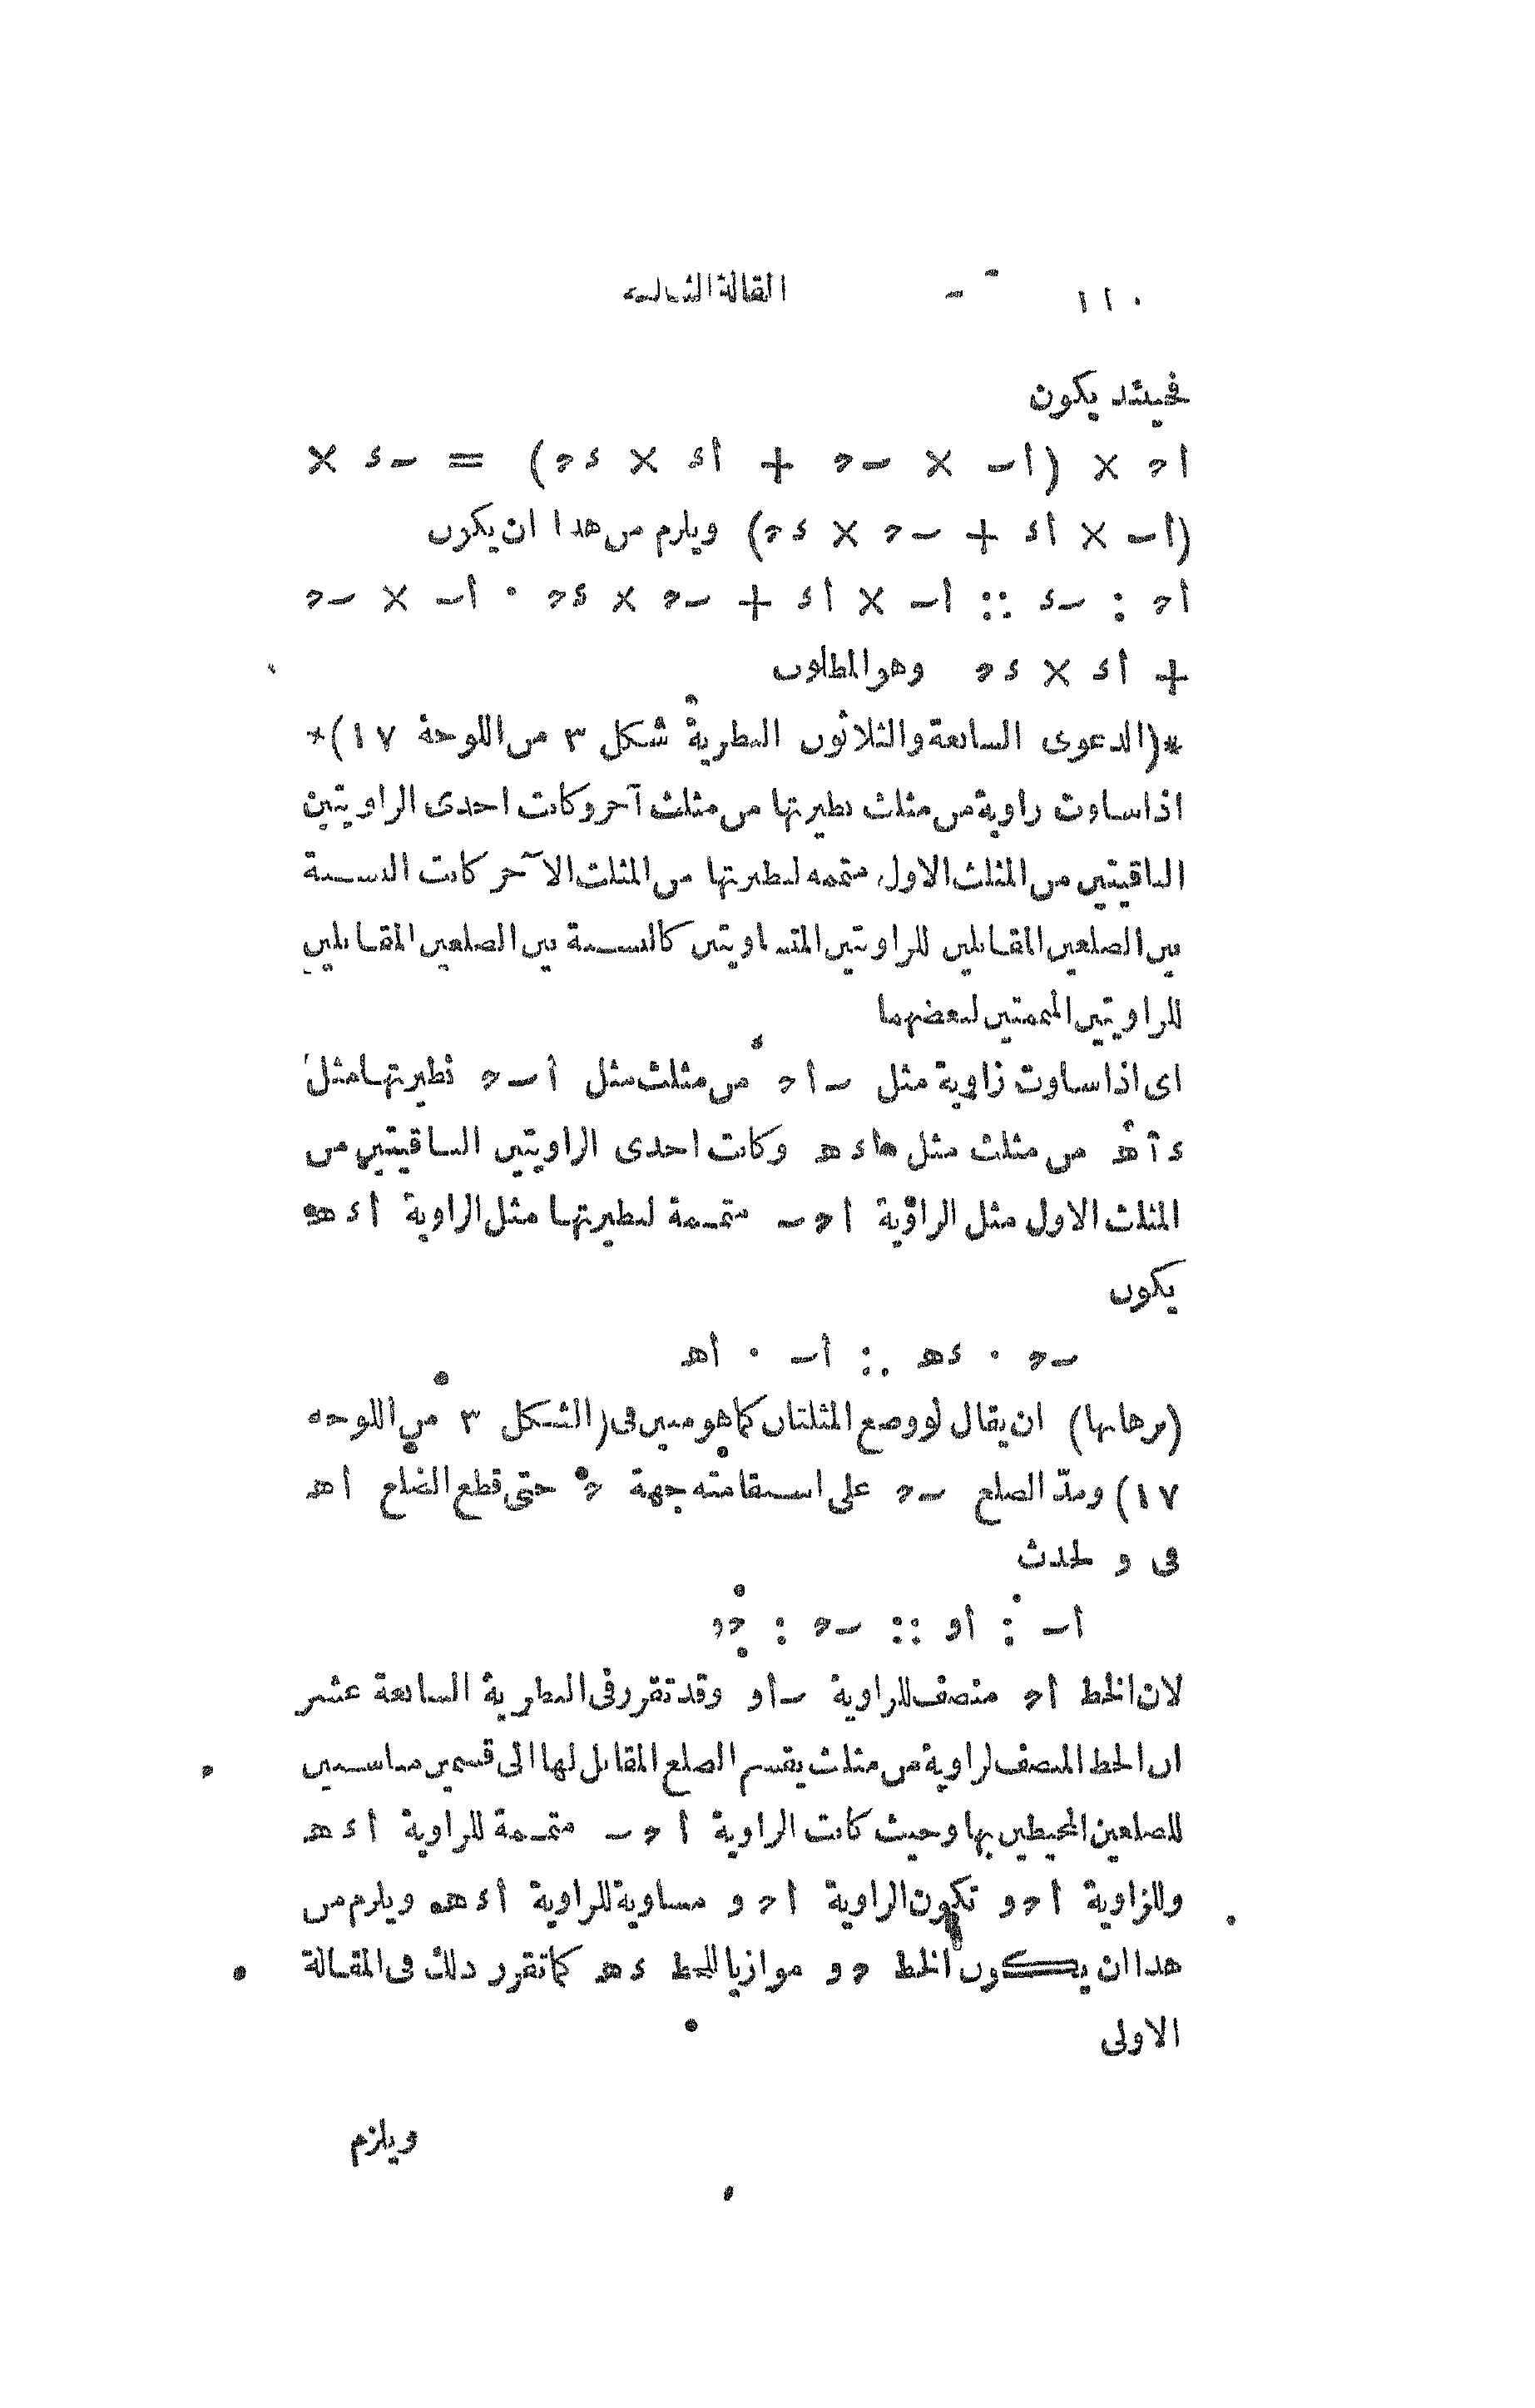 ١١٠ المقالة الثالثة
فحينئذ يكون
اح × (اب × بح + اء × ءح) = بء ×
(اب × اء + بح × ءح) ويلزم من هذا ان يكون
اح : بء :: اب × اء + بح × ءح : اب × بح
+ اء × ءح وهو المطلوب
*(الدعوى السابعة والثلاثون النظرية شكل ٣ من اللوحة ١٧)*
اذا ساوت زاوية من مثلث نظيرتها من مثلث آخر وكانت احدى الزاويتين
الباقيتين من المثلث الاول متممة لنظيرتها من المثلث الآخر كانت النسبة
بين الضلعين المقابلين للزاويتين المتساويتين كالنسبة بين الضلعين المقابلين
للزاويتين المتممتين لبعضهما
اى اذا ساوت زاوية مثل باح من مثلث مثل ابح نظيرتها مثل
ءاه من مثلث مثل اءه وكانت احدى الزاويتين الباقيتين من
المثلث الاول مثل الزاوية احب متممة لنظيرتها مثل الزاوية اءه
يكون
بح : ءه :: اب : اه
(برهانها) ان يقال لو وضع المثلثان كما هو مبين فى (الشكل ٣ من اللوحه
١٧) ومدّ الضلع بح على استقامته جهة ح حتى قطع الضلع اه
فى و لحدث
اب : او :: بح : حو
لان الخط اح منصف للزاوية باو وقد تقرر فى النظرية السابعة عشر
ان الخط المنصف لزاوية من مثلث يقسم الضلع المقابل لها الى قسمين مناسبين
للضلعين المحيطين بها وحيث كانت الزاوية احب متممة للزاوية اءه
وللزاوية احو تكون الزاوية احو مساوية للزاوية اءه ويلزم من
هذا ان يكون الخط حو موازيا للخط ءه كما تقرر ذلك فى المقالة
الاولى
ويلزم